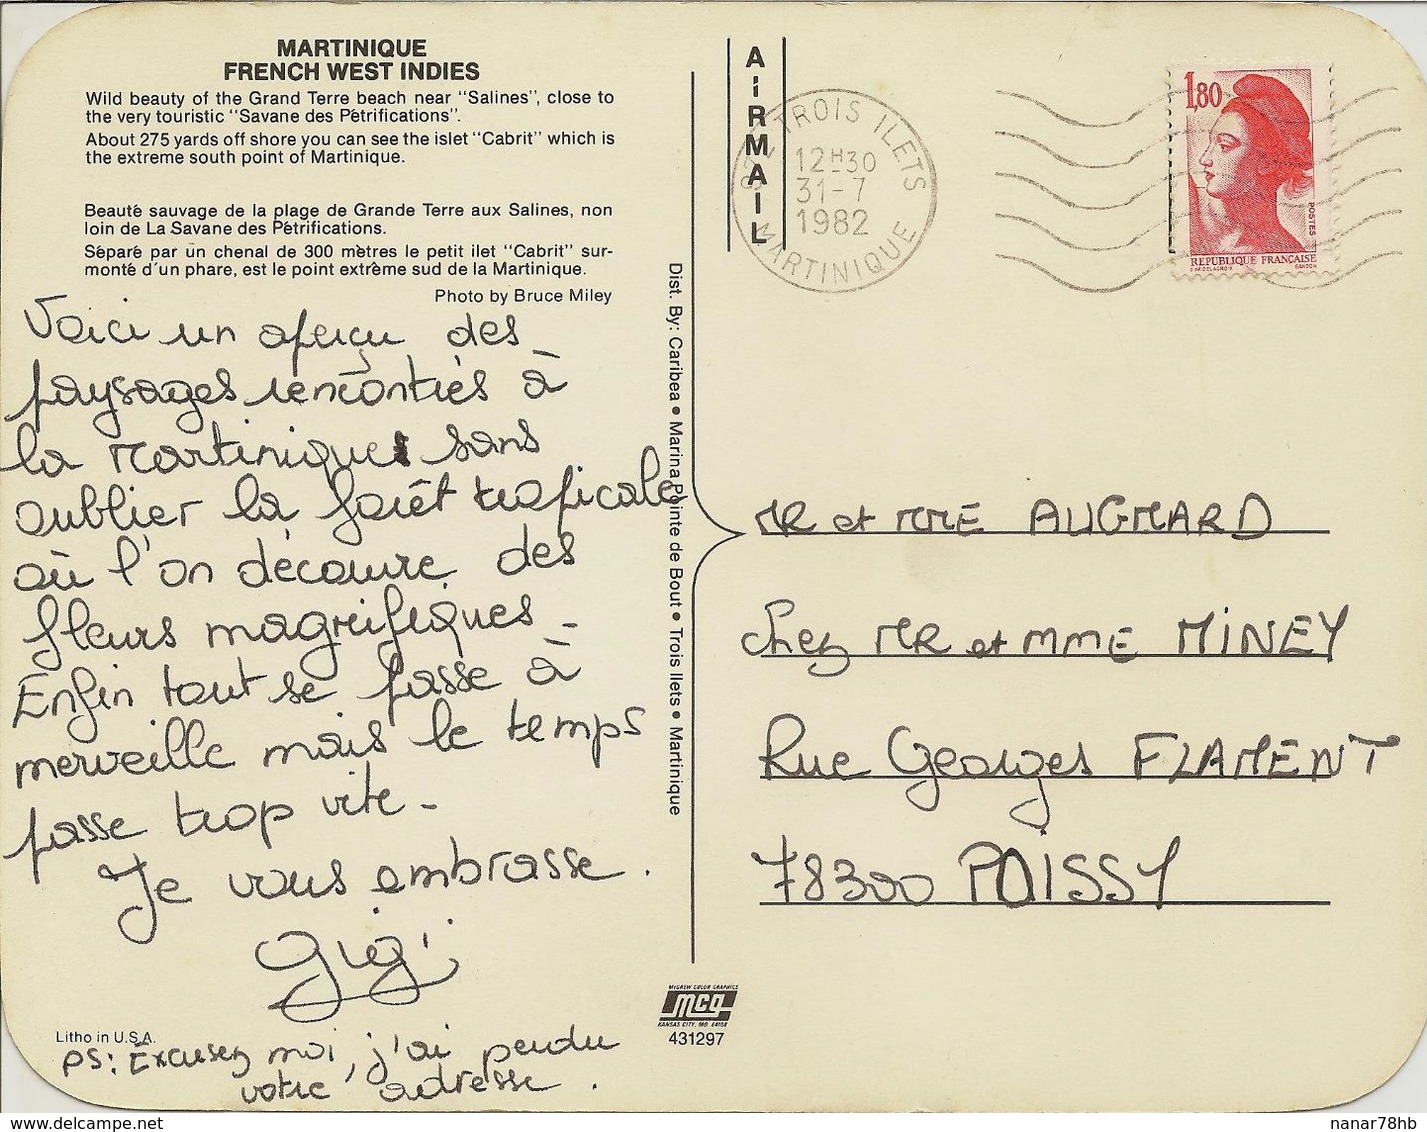 MARTINIQUE
FRENCH WEST INDIES
Wild beauty of the Grand Terre beach near "Salines", close to
the very touristic "Savane des Pétrifications".
About 275 yards off shore you can see the islet "Cabrit" which is
the extreme south point of Martinique.
Beauté sauvage de la plage de Grande Terre aux Salines, non
loin de La Savane des Pétrifications.
Séparé par un chenal de 300 mètres le petit ilet "Cabrit" sur-
monté d'un phare, est le point extrême sud de la Martinique.
Photo by Bruce Miley
Voici un aperçu des
paysages rencontrés à
la Martinique sans
oublier la forêt tropicale
où l'on découvre des
fleurs magnifiques -
Enfin tout se passe à
merveille mais le temps
passe trop vite -
Je vous embrasse.
Gigi
Litho in U.S.A.
PS: Excusez moi, j'ai perdu
votre adresse.
Dist. By: Caribea • Marina Pointe de Bout • Trois Ilets • Martinique
McGREW COLOR GRAPHICS
mcg
KANSAS CITY, MO. 64108
431297
AiRMAIL
972 TROIS ILETS
12H30
31-7
1982
MARTINIQUE
1,80
POSTES
REPUBLIQUE FRANÇAISE
D'AP. DELACROIX GANDON
MR et MME AUGMARD
Chez MR et MME MINEY
Rue Georges FLAMENT
78300 POISSY
nanar78hb